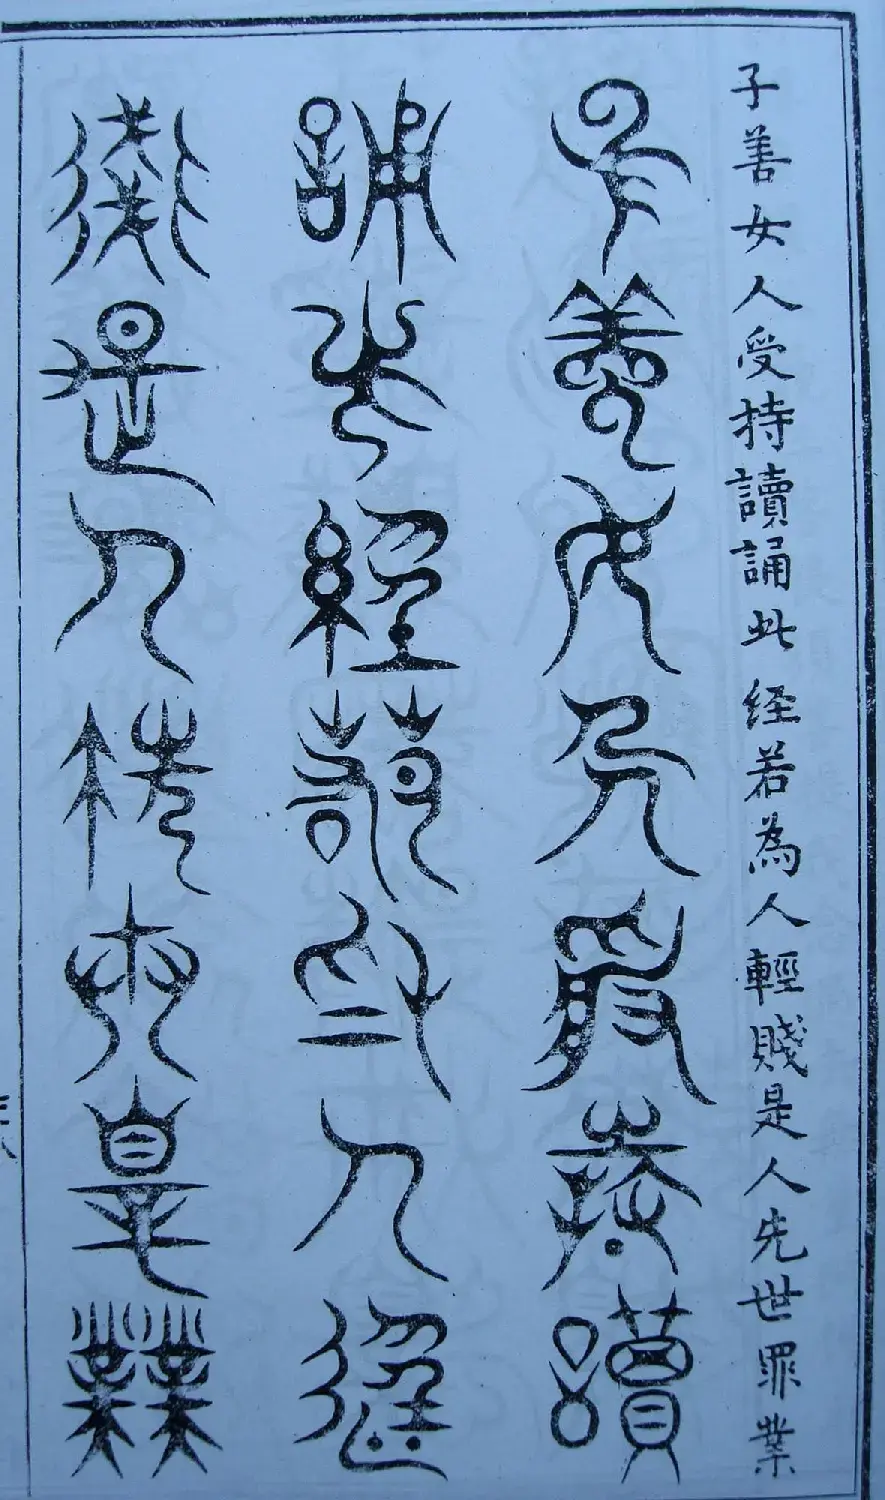 子善女人受持讀誦此経若為人輕賤是人先世罪業
子善女人受持讀
誦此經若為人輕
賤是人先世辠業